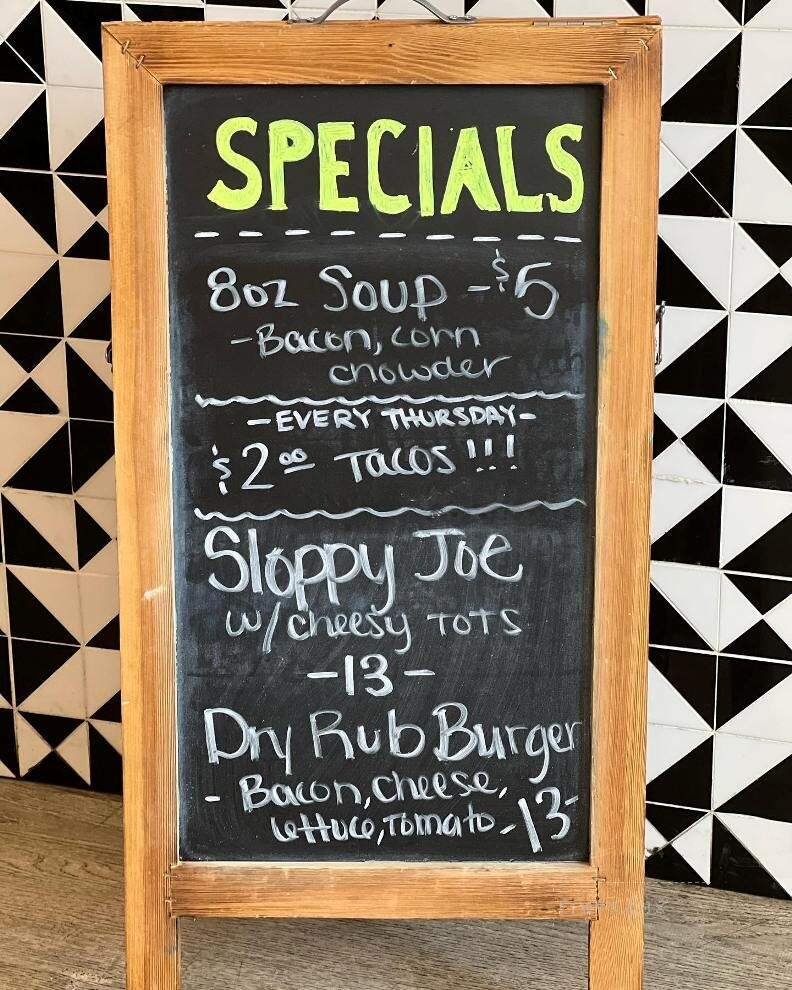 SPECIALS
8oz Soup - $5
- Bacon, corn
chowder
- EVERY THURSDAY -
$2.00 Tacos !!!
Sloppy Joe
w/ cheesy TOTS
- 13 -
Dry Rub Burger
- Bacon, cheese,
lettuce, Tomato - 13 -